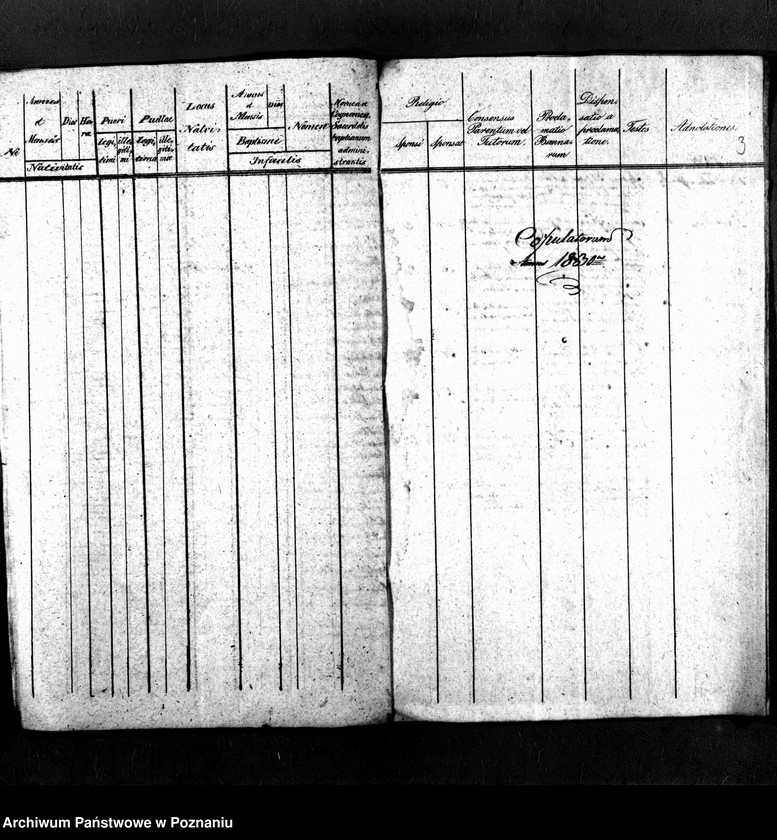 No
Annus
et
Mensis
Dies
Ho-
ra
Nativitatis
Pueri
Legi,
timi
ille,
giti,
mi
Puellae
Legi,
timae
ille,
giti,
mae
Locus
Nativi
tatis
Annus
et
Mensis
Dies
Baptismi
Nomen
Infantis
Nomen et
Cognomen
Sacerdotis
baptismum
admini,
strantis
Religio
Sponsi
Sponsae
Consensus
Parentum vel
Tutorum.
Procla,
matio
Banno,
rum
Dispen,
satio a
proclama,
tione.
Testes
Adnotationes.
3
Copulatorum
Anno 1830
Archiwum Państwowe w Poznaniu